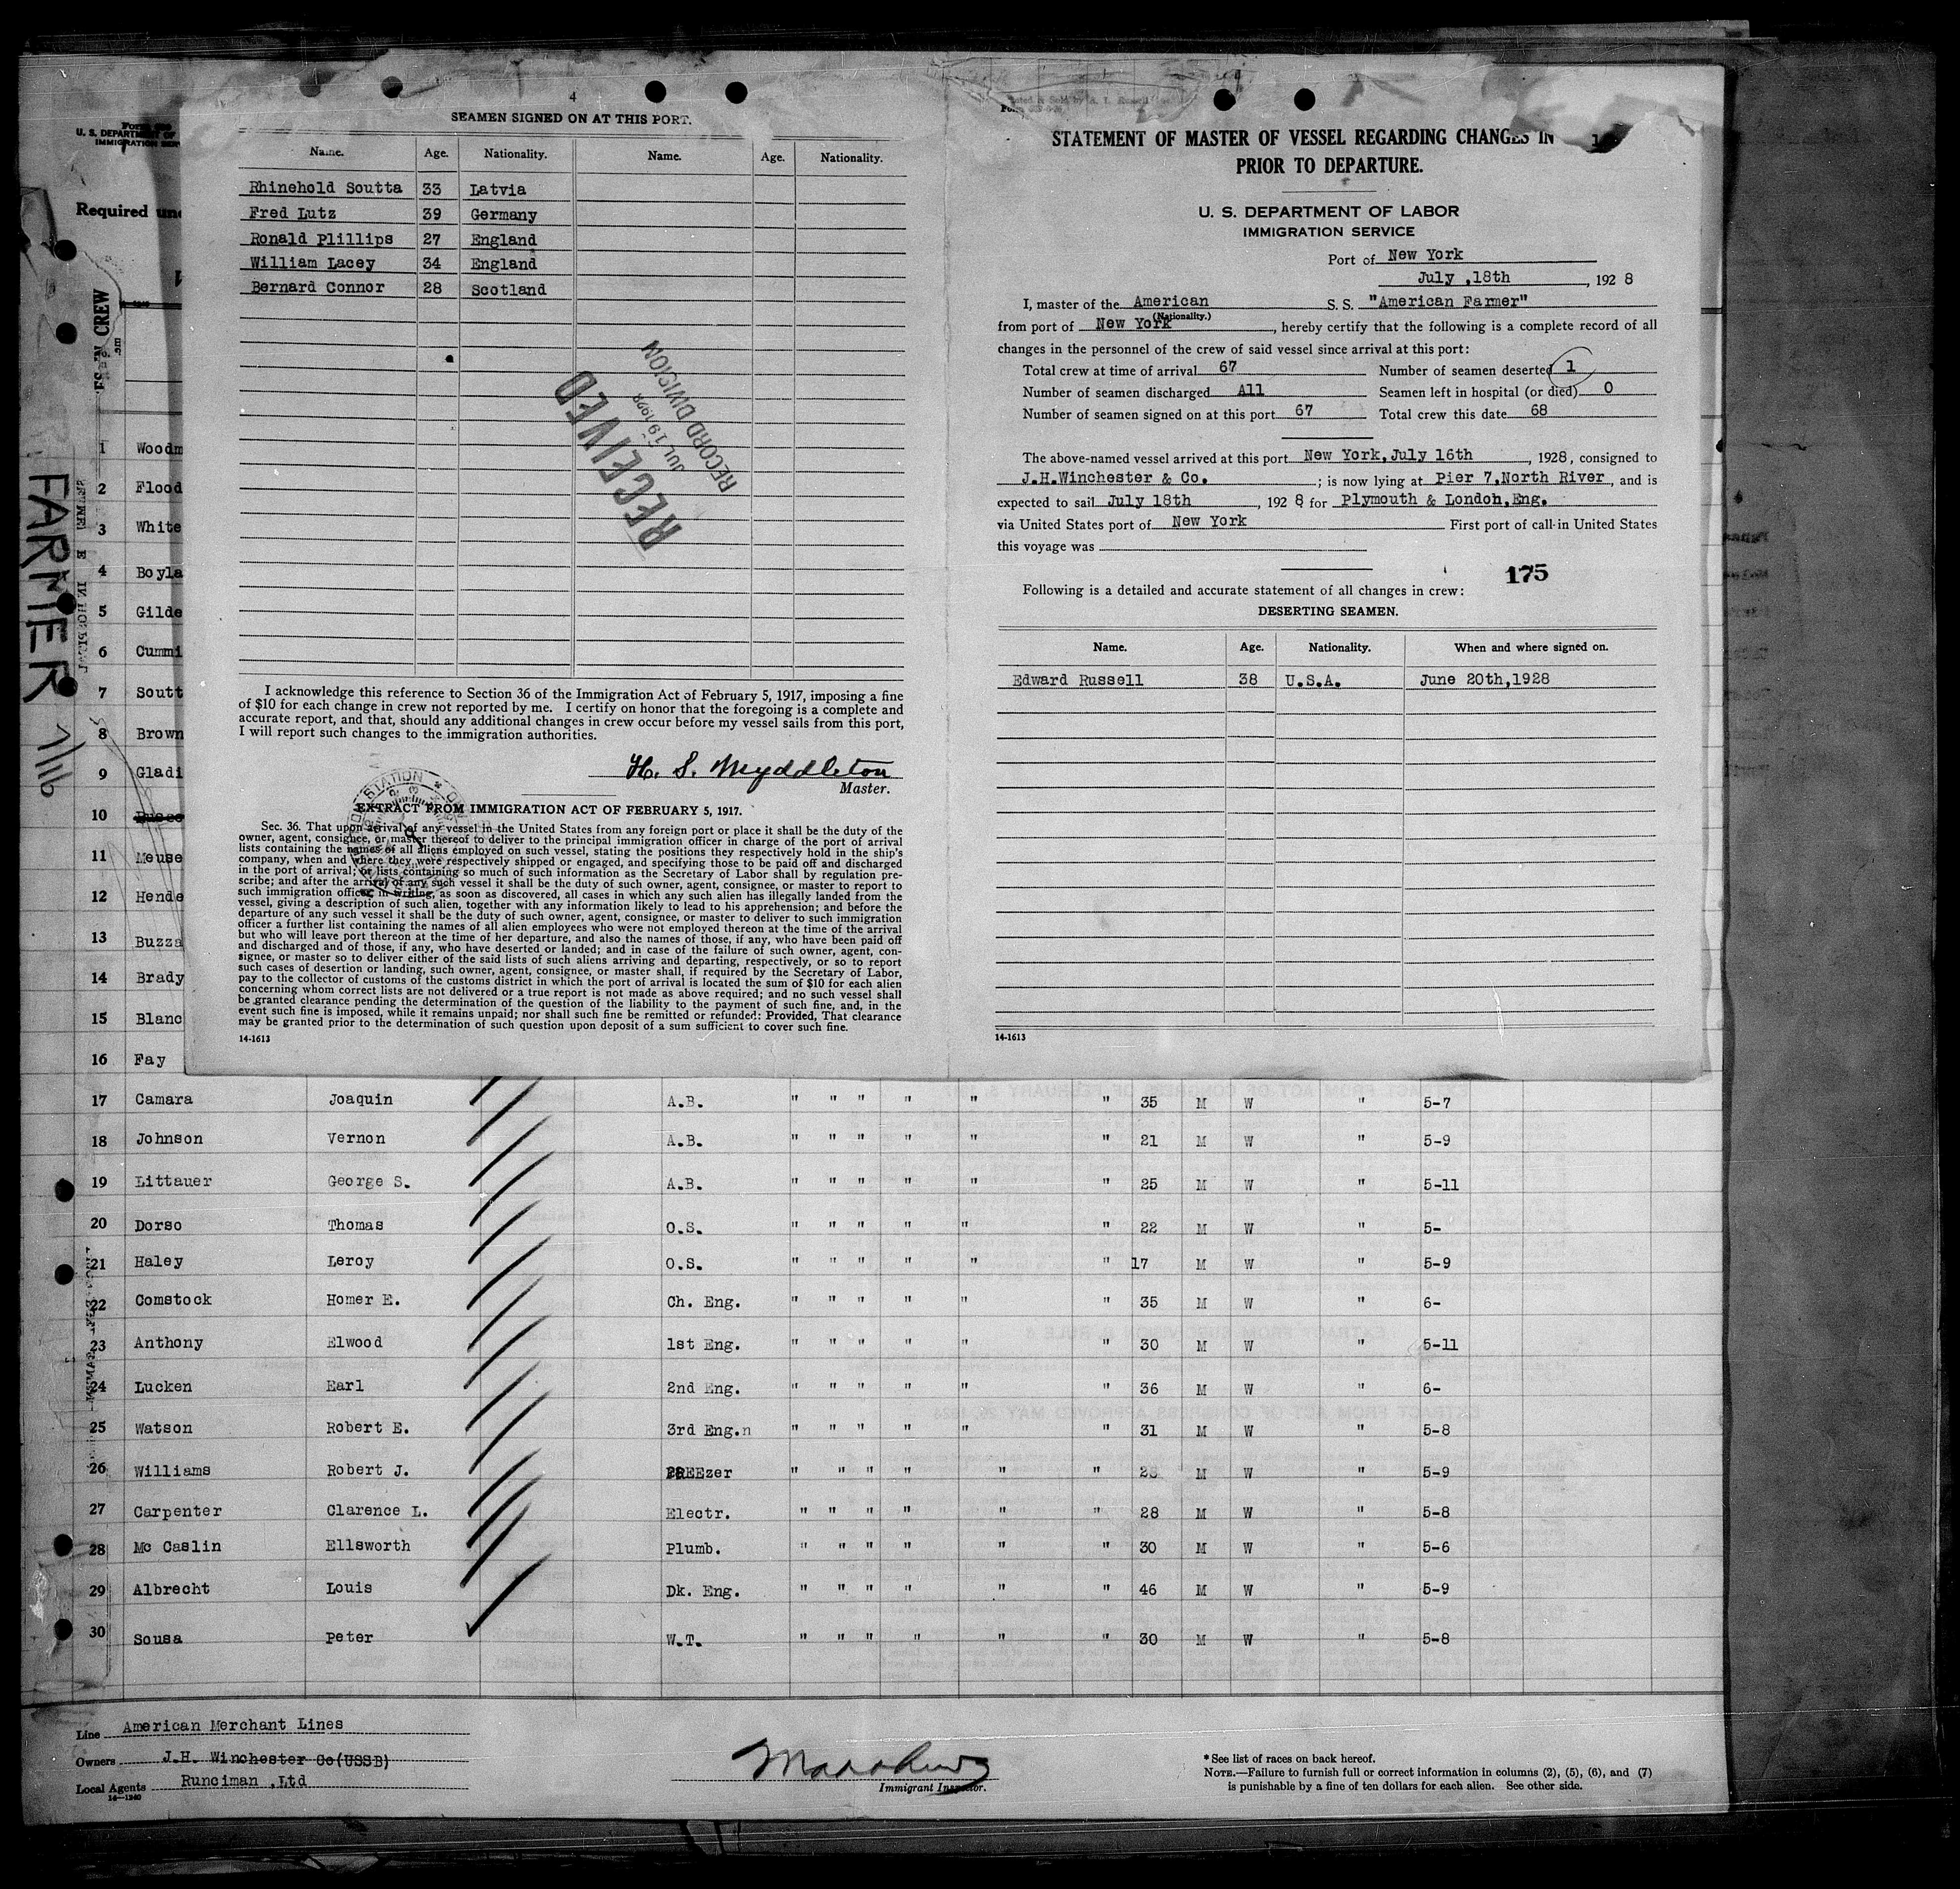 4
SEAMEN SIGNED ON AT THIS PORT.
Name. Age. Nationality. Name. Age. Nationality.
Rhinehold Soutta 33 Latvia
Fred Lutz 39 Germany
Ronald Plillips 27 England
William Lacey 34 England
Bernard Connor 28 Scotland
RECEIVED
JUL 19 1928
RECORD DIVISION
I acknowledge this reference to Section 36 of the Immigration Act of February 5, 1917, imposing a fine
of $10 for each change in crew not reported by me. I certify on honor that the foregoing is a complete and
accurate report, and that, should any additional changes in crew occur before my vessel sails from this port,
I will report such changes to the immigration authorities.
H. S. Myddleton
Master.
EXTRACT FROM IMMIGRATION ACT OF FEBRUARY 5, 1917.
Sec. 36. That upon arrival of any vessel in the United States from any foreign port or place it shall be the duty of the
owner, agent, consignee, or master thereof to deliver to the principal immigration officer in charge of the port of arrival
lists containing the names of all aliens employed on such vessel, stating the positions they respectively hold in the ship's
company, when and where they were respectively shipped or engaged, and specifying those to be paid off and discharged
in the port of arrival; or lists containing so much of such information as the Secretary of Labor shall by regulation pre-
scribe; and after the arrival of any such vessel it shall be the duty of such owner, agent, consignee, or master to report to
such immigration officer, in writing, as soon as discovered, all cases in which any such alien has illegally landed from the
vessel, giving a description of such alien, together with any information likely to lead to his apprehension; and before the
departure of any such vessel it shall be the duty of such owner, agent, consignee, or master to deliver to such immigration
officer a further list containing the names of all alien employees who were not employed thereon at the time of the arrival
but who will leave port thereon at the time of her departure, and also the names of those, if any, who have been paid off
and discharged and of those, if any, who have deserted or landed; and in case of the failure of such owner, agent, con-
signee, or master so to deliver either of the said lists of such aliens arriving and departing, respectively, or so to report
such cases of desertion or landing, such owner, agent, consignee, or master shall, if required by the Secretary of Labor,
pay to the collector of customs of the customs district in which the port of arrival is located the sum of $10 for each alien
concerning whom correct lists are not delivered or a true report is not made as above required; and no such vessel shall
be granted clearance pending the determination of the question of the liability to the payment of such fine, and, in the
event such fine is imposed, while it remains unpaid; nor shall such fine be remitted or refunded: Provided, That clearance
may be granted prior to the determination of such question upon deposit of a sum sufficient to cover such fine.
14-1613
STATEMENT OF MASTER OF VESSEL REGARDING CHANGES IN
PRIOR TO DEPARTURE.
U. S. DEPARTMENT OF LABOR
IMMIGRATION SERVICE
Port of New York
July ,18th, 1928
I, master of the American S. S. "American Farmer"
(Nationality.)
from port of New York, hereby certify that the following is a complete record of all
changes in the personnel of the crew of said vessel since arrival at this port:
Total crew at time of arrival 67 Number of seamen deserted 1
Number of seamen discharged All Seamen left in hospital (or died) 0
Number of seamen signed on at this port 67 Total crew this date 68
The above-named vessel arrived at this port New York,July 16th, 1928, consigned to
J.H.Winchester & Co.; is now lying at Pier 7,North River, and is
expected to sail July 18th, 1928 for Plymouth & London,Eng.
via United States port of New York First port of call in United States
this voyage was
175
Following is a detailed and accurate statement of all changes in crew:
DESERTING SEAMEN.
Name. Age. Nationality. When and where signed on.
Edward Russell 38 U.S.A. June 20th,1928
14-1613
U. S. DEPARTMENT OF
IMMIGRATION SER
Required und
CREW
FARMER 7/16
1 Woodm
2 Flood
3 White
4 Boyla
5 Gilde
6 Cummi
7 Soutt
8 Brown
9 Gladi
10
11 Meuse
12 Hende
13 Buzza
14 Brady
15 Blanc
16 Fay
17 Camara Joaquin A.B. " " " " " " 35 M W " 5-7
18 Johnson Vernon A.B. " " " " " " 21 M W " 5-9
19 Littauer George S. A.B. " " " " " " 25 M W " 5-11
20 Dorso Thomas O.S. " " " " " " 22 M W " 5-
21 Haley Leroy O.S. " " " " " " 17 M W " 5-9
22 Comstock Homer E. Ch. Eng. " " " " " " 35 M W " 6-
23 Anthony Elwood 1st Eng. " " " " " " 30 M W " 5-11
24 Lucken Earl 2nd Eng. " " " " " " 36 M W " 6-
25 Watson Robert E. 3rd Eng.n " " " " " " 31 M W " 5-8
26 Williams Robert J. FREEzer " " " " " " 28 M W " 5-9
27 Carpenter Clarence L. Electr. " " " " " " 28 M W " 5-8
28 Mc Caslin Ellsworth Plumb. " " " " " " 30 M W " 5-6
29 Albrecht Louis Dk. Eng. " " " " " " 46 M W " 5-9
30 Sousa Peter W.T. " " " " " " 30 M W " 5-8
Line American Merchant Lines
Owners J.H. Winchester Co(USSB)
Local Agents Runciman ,Ltd
14-1240
Immigrant Inspector.
* See list of races on back hereof.
NOTE.—Failure to furnish full or correct information in columns (2), (5), (6), and (7)
is punishable by a fine of ten dollars for each alien. See other side.